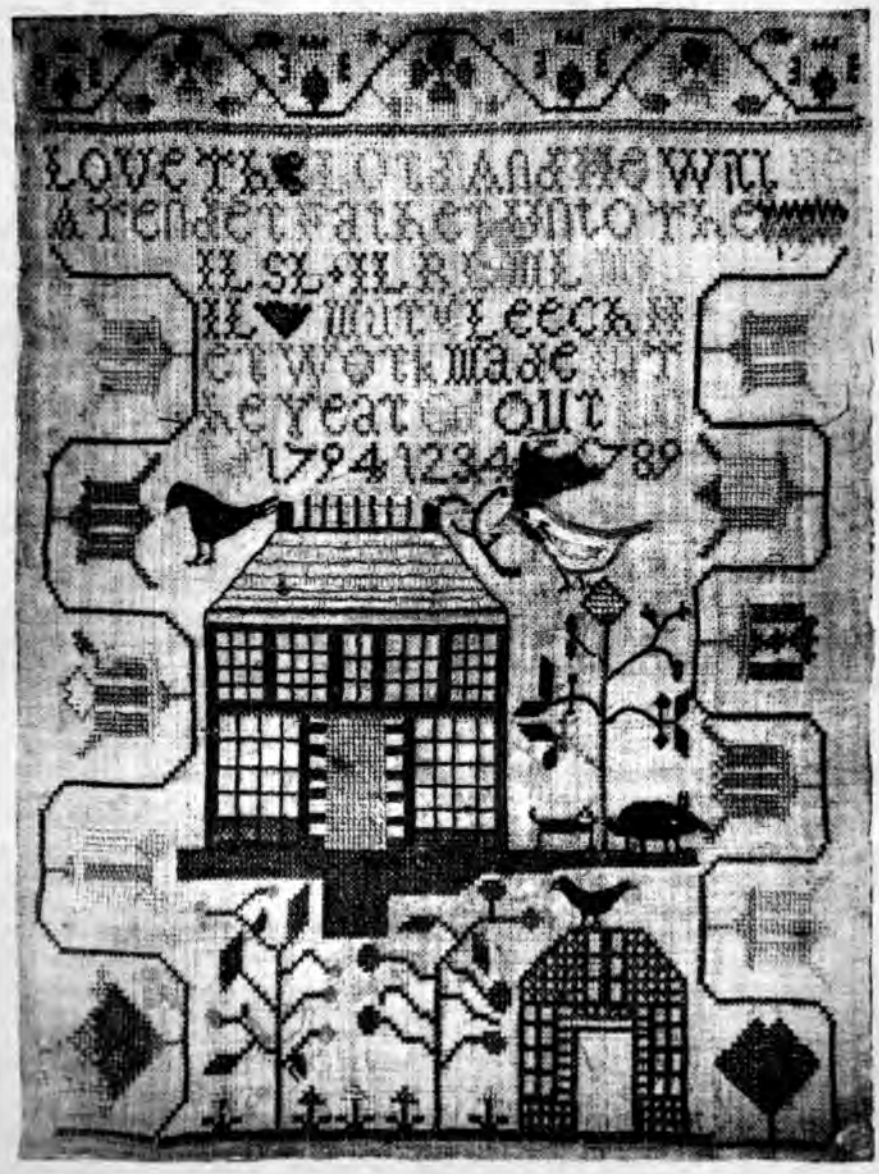 Love The Lord And He Will be
A Tender Father Unto The
IL SL IL RL ML
IL mary Leech H
er Work made
he Year Out
1794 1234 789